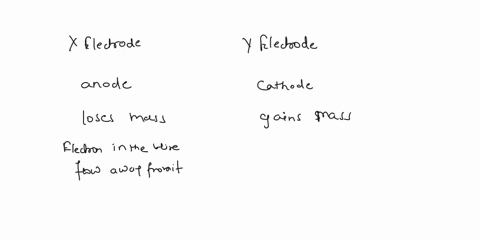 X Electrode
Y Electrode
anode
Cathode
loses mass
gains mass
Electron in the wire
flow away from it